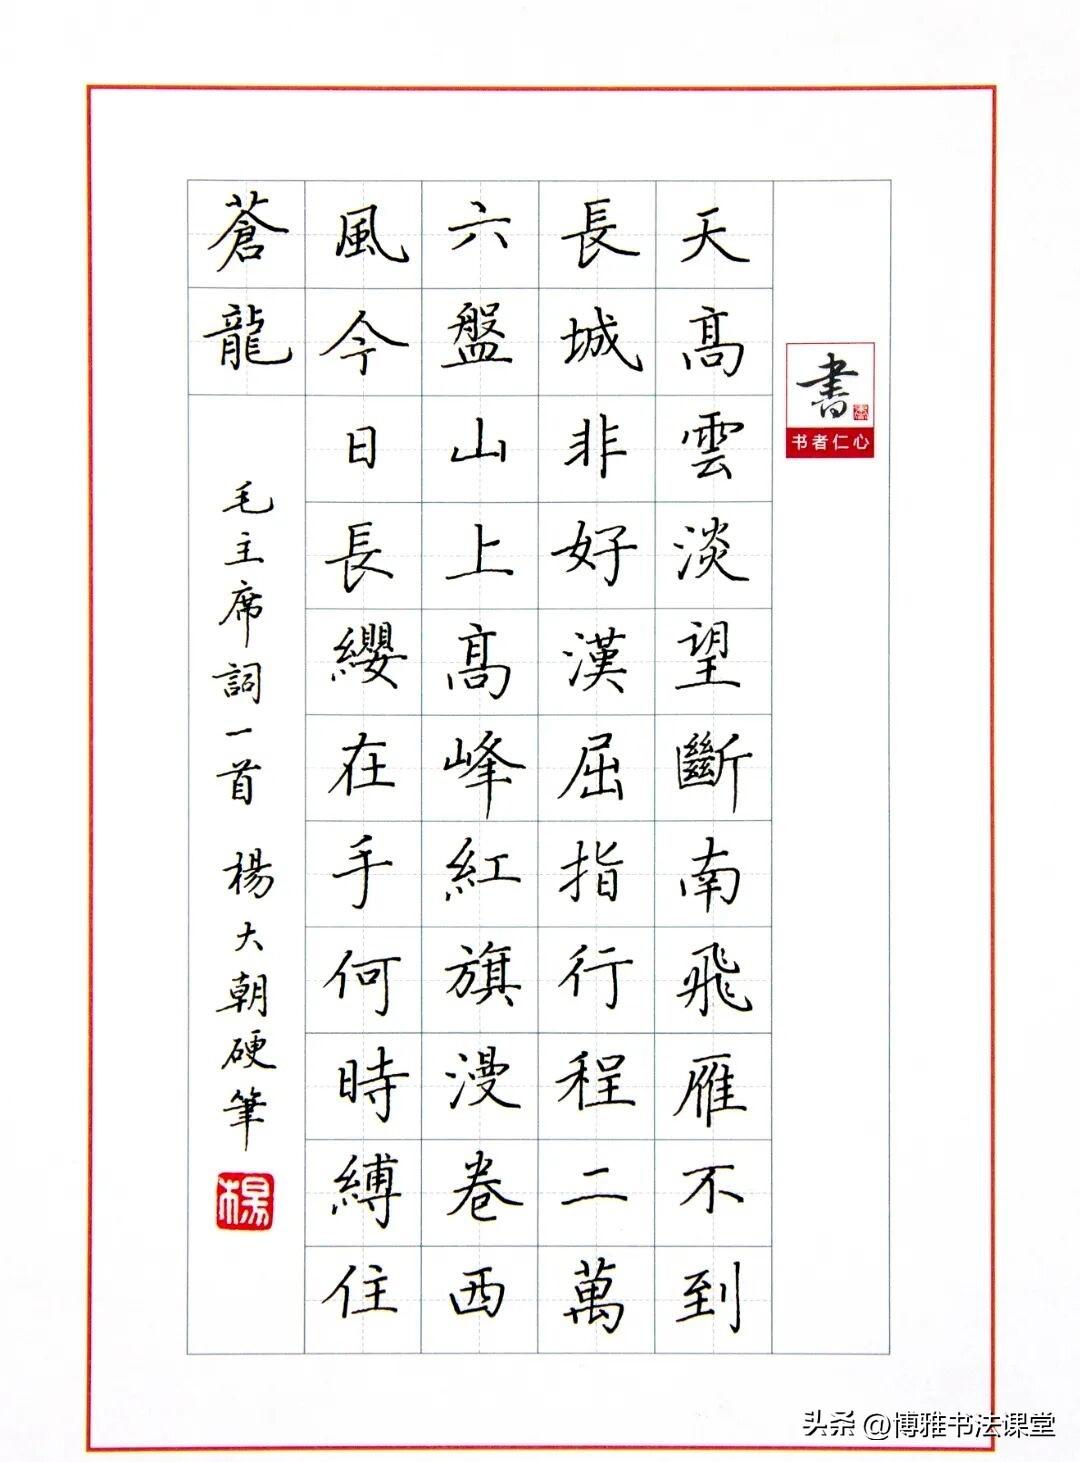 書
书者仁心
天高雲淡望斷南飛雁不到
長城非好漢屈指行程二萬
六盤山上高峰紅旗漫卷西
風今日長纓在手何時縛住
蒼龍
毛主席詞一首 楊大朝硬筆
楊
头条 @博雅书法课堂